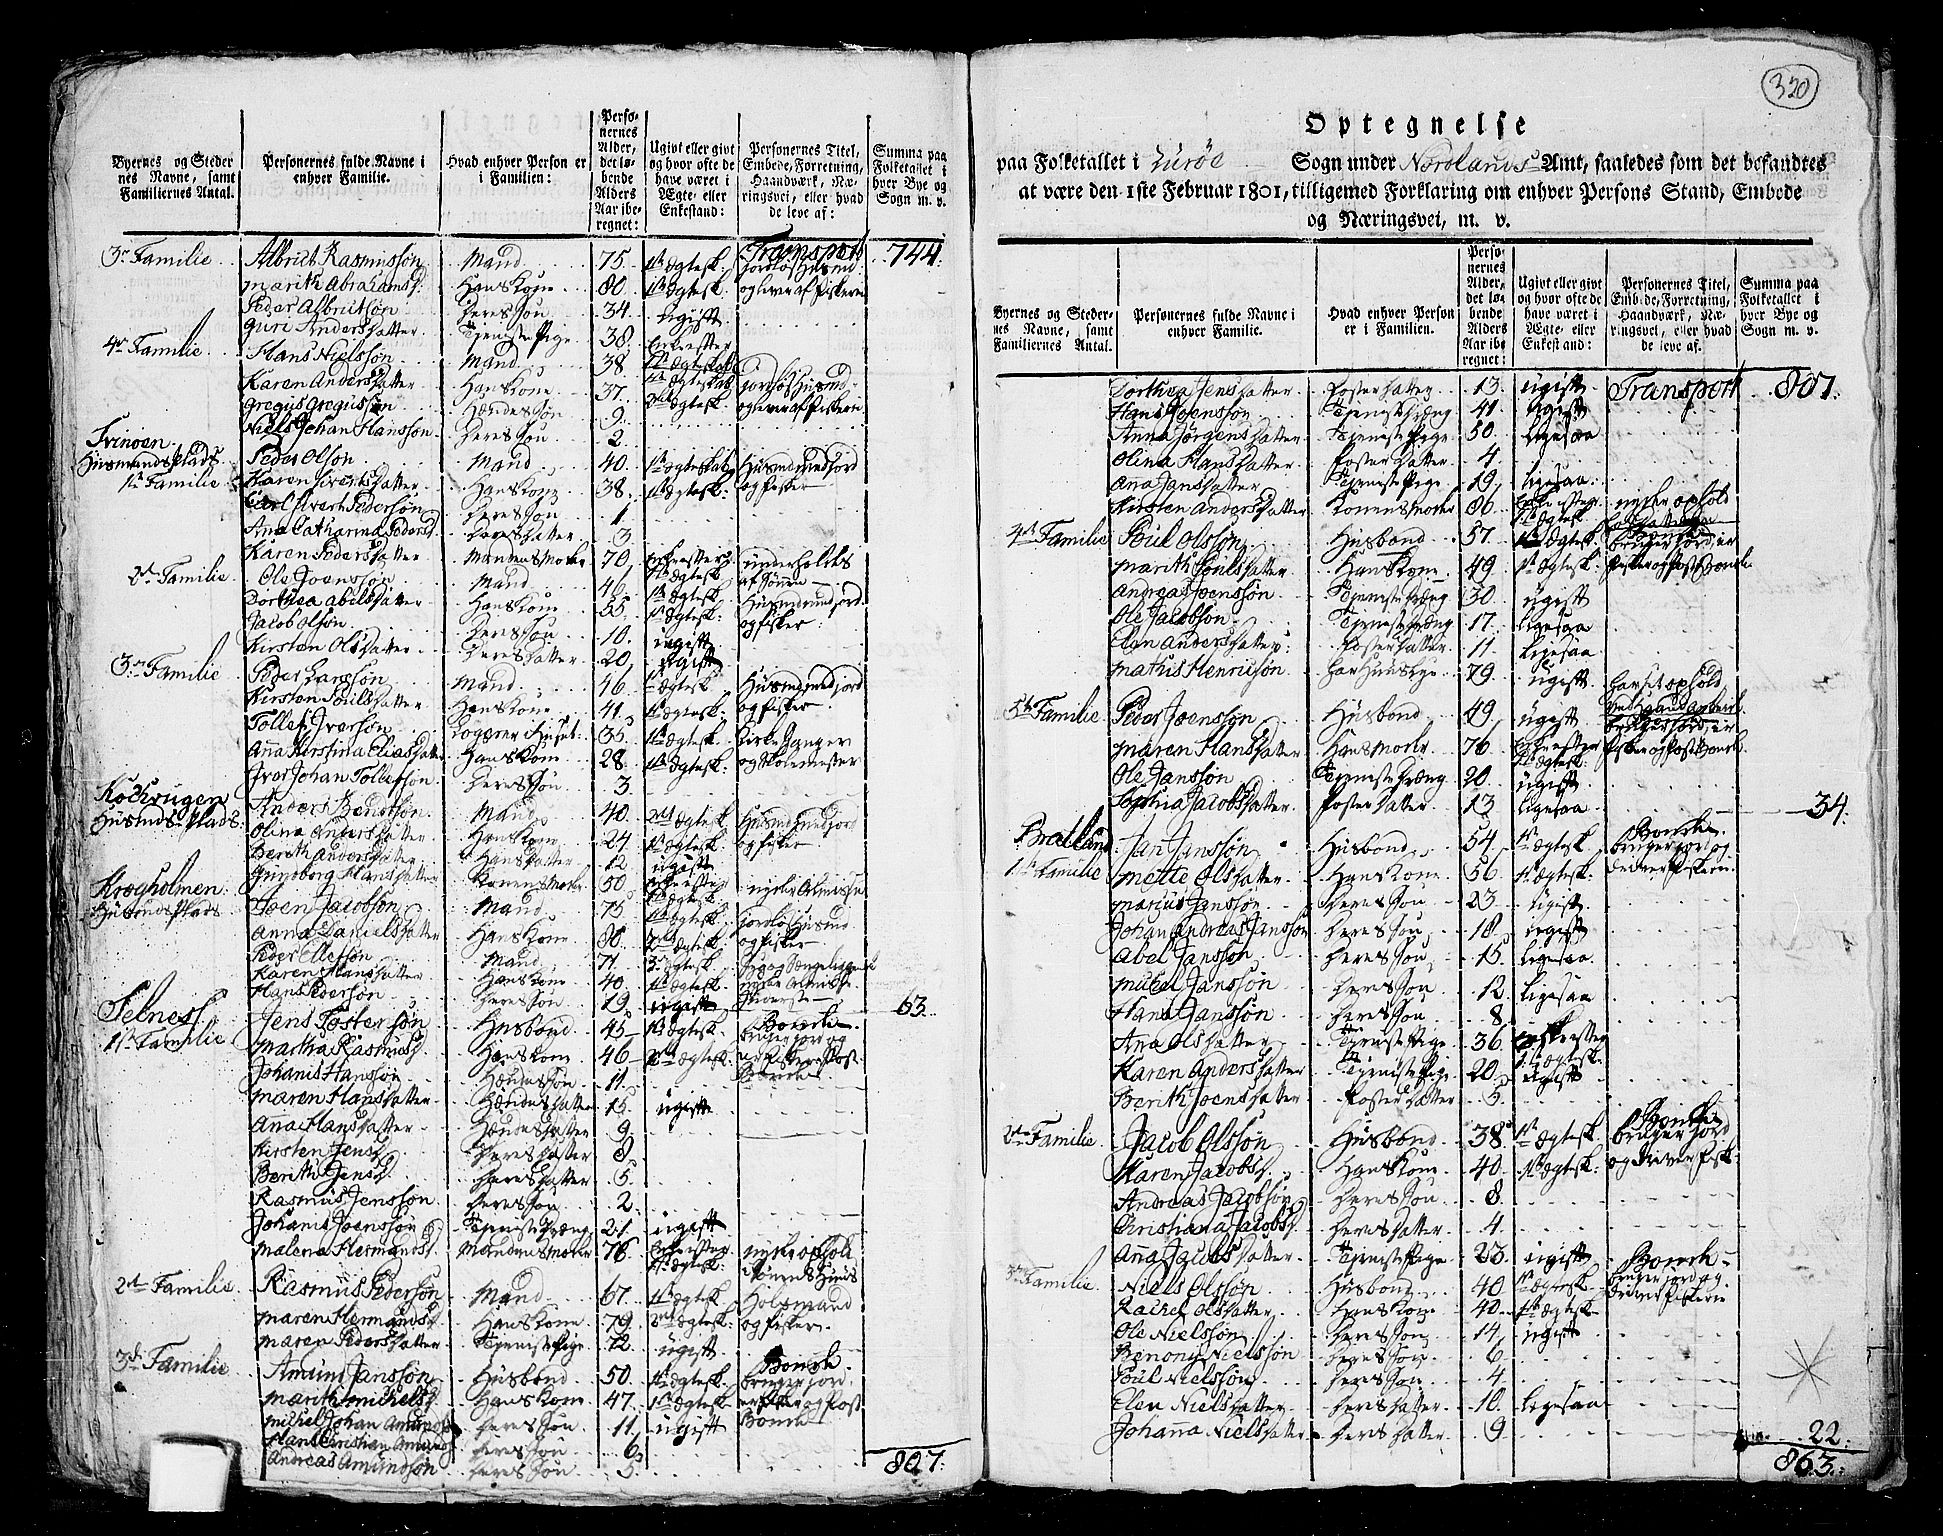 Byernes og Steder
nes Navne, samt
Familiernes Antal.
Personernes fulde Navne i
enhver Familie.
Hvad enhver Person er
i Familien:
Perso-
nernes
Alder,
det lø-
bende
Alders
Aar ibe-
regnet:
Ugivt eller givt
og hvor ofte de
have været i
Ægte- eller
Enkestand:
Personernes Titel,
Embede, Forretning,
Haandværk, Næ-
ringsvei, eller hvad
de leve af:
Summa paa
Folketallet i
hver Bye og
Sogn m. v.
Transport 744.
3de Familie Albrict Rasmusson Mand 75 1ste Ægtesk. jordløs Husmd
Marith Abrahamsd. Hans Kone 80 1ste Ægtesk. og lever af fiskerie
Peder Albrictsøn Deres Søn 34 ugift
Guri Andersdatter Tjeneste Pige 38
4de Familie Hans Nielssøn Mand 38 jordløs Husmd
Karen Andersdatter Hans Kone 37 og lever af fiskerie
Gregus Gregussøn Hendes Søn 9
Niels Johan Hansson Deres Søn 2
Husmands Plads Peder Olsøn Mand 40 1ste Ægteskab Husmd med jord
1ste Familie Karen Sivertsdatter Hans Kone 38 1ste Ægtesk: og fisker
Carl Sivert Pedersøn Deres Søn 1
Ana Catharina Pedersd. Deres datter 3
Karen Pedersdatter Mandens Moder 70 underholdes
af Sønen
2de Familie Ole Joenssøn Mand 46 1ste Ægtesk. Husmd med jord
Dorthea Abelsdatter Hans Kone 55 1ste Ægtesk: og fisker
Jacob Olsøn Deres Søn 10
Kirsten Olsdatter Deres datter 20 ugift
3de Familie Peder Larssøn Mand 46 Ægtesk Husmd med jord
Kirsten Poulsdatter Hans Kone 41 1ste Ægtesk. og fisker
Tollef Iversøn Logerer i Huset 35 1ste Ægtesk. Kirke Sanger
Anna Kirstina Eliasdatter Hans Kone 28 1ste Ægtesk: og Skolemester
Iver Johan Tollefsøn Deres Søn 3
Husmds Plads Anders Bendtsøn Mand 40 2det Ægtesk. Husmd med jord
Olina Andersdatter Hans Kone 24 1ste Ægtesk. og fisker
Berith Andersdatter Hans datter 12 ugift
Gundborg Hansdatter Konens Moder 50 nyder Almisse
Krogholmen Husmds Plads Joen Jacobsøn Mand 75 1ste Ægtesk. jordløs Husmd
Anna Danielsdatter Hans Kone 86 2det Ægtesk. og fisker
Peder Ellefsøn Mand 71 3de Ægtesk.
Karen Hansdatter Hans Kone 40 1ste Ægtesk.
Hans Pedersøn Deres Søn 19 ugift 63.
Selnes
1ste Familie Jens Fostersøn Husbond 45 1ste Ægtesk. Bonde
Martha Rasmusd. Hans Kone 46 2det Ægtesk.
Johanis Hanssøn Hendes Søn 11
Maren Hansdatter Hendes datter 15 ugift
Ana Hansdatter Hendes datter 9
Kirsten Jensd. Deres datter 8
Berith Jensd. Deres datter 5
Rasmus Jenssøn Deres Søn 2
Johanis Joenssøn Tjeneste Dreng 21 ugift
Malena Hermansd. Mandens Moder 76 nyder ophold
i Sønens Huus
2den Familie Rasmus Pedersøn Mand 67 1ste Ægtesk. Holsmand
Maren Hermansd. Hans Kone 79 2det Ægtesk. og fisker
Maren Pedersdatter Tjeneste Pige 72 ugift
3de Familie Amund Janssøn Husbond 50 1ste Ægtesk: Bonde
Marith Mikelsd. Hans Kone 47 1ste Ægtesk: bruger jord
Mikel Johan Amundsøn Deres Søn 11 ugift
Hans Christian Amunds. Deres Søn 6
Andreas Amundsøn Deres Søn 3
807.
320
Optegnelse
paa Folketallet i Lurøe Sogn under Nordlands Amt, saaledes som det befandtes
at være den 1ste Februar 1801, tilligemed Forklaring om enhver Persons Stand, Embede
og Næringsvei, m. v.
Byernes og Steder-
nes Navne, samt
Familiernes Antal.
Personernes fulde Navne i
enhver Familie.
Hvad enhver Person
er i Familien.
Perso-
nernes
Alder,
det lø-
bende
Alders
Aar ibe-
regnet:
Ugivt eller givt
og hvor ofte de
have været i
Ægte- eller
Enkestand:
Personernes Titel,
Embede, Forretning,
Haandværk, Næ-
ringsvei, eller hvad
de leve af.
Summa paa
Folketallet i
hver Bye og
Sogn m. v.
Dorthea Jensdatter Foster datter 13 ugift Transport 807.
Hans Joenssøn Tjeneste Dræng 41 ugift
Anna Jørgensdatter Tjeneste Pige 50 ligesaa
Olina Hansdatter Foster datter 4
Ana Jansdatter Tjeneste Pige 19 ligesaa
Kirsten Andersdatter Konens Moder 86 nyder ophold
4de Familie Poul Olssøn Husbond 57 1ste Ægtesk. bruger jord, er
Marith Poulsdatter Hans Kone 49 1ste Ægtesk. fisker og Post Bonde
Andreas Joenssøn Tjeneste Dræng 30 ugift
Ole Jacobsøn Tjeneste Dræng 17 ligesaa
Elen Andersdatter Foster datter 11 ligesaa
Mathis Henricsøn 79 ugift
5te Familie Peder Joenssøn Husbond 49 ugift bruger jord, er
Maren Hansdatter Hans Moder 76 fisker og Post Bonde
Ole Janssøn Tjeneste Dræng 20 ugift
Sophia Jacobsdatter Foster datter 13 ligesaa 34.
Bratland
1ste Familie Jan Janssøn Husbond 54 1ste Ægtesk. Bonde bruger jor og
Mette Olsdatter Hans Kone 56 1ste Ægtesk. driver fiskerie
Marius Janssøn Deres Søn 23 ugift
Johan Andreas Janssøn Deres Søn 18 ugift
Abel Janssøn Deres Søn 15 ligesaa
Mikel Janssøn Deres Søn 12 ligesaa
Hans Janssøn Deres Søn 8
Ana Olsdatter Tjeneste Pige 36
Karen Andersdatter Tjeneste Pige 20 ugift
Berith Joensdatter Foster datter 5
2den Familie Jacob Olssøn Husbond 38 1ste Ægtesk. Bonde bruger jord
Karen Jacobsd. Hans Kone 40 1ste Ægtesk: og driver fisk:
Andreas Jacobsøn Deres Søn 8
Christiana Jacobsd. Deres datter 4
Anna Jacobsdatter Tjeneste Pige 23 ugift
3de Familie Niels Olssøn Husbond 40 1ste Ægtesk. Bonde bruger jord og
Rachel Olsdatter Hans Kone 40 1ste Ægtesk. driver fiskerie
Ole Nielssøn Deres Søn 14 ugift
Benoni Nielssøn Deres Søn 6
Poul Nielssøn Deres Søn 4
Elen Nielsdatter Deres datter 10 ligesaa
Johanna Nielsdatter Deres datter 9
22.
863.